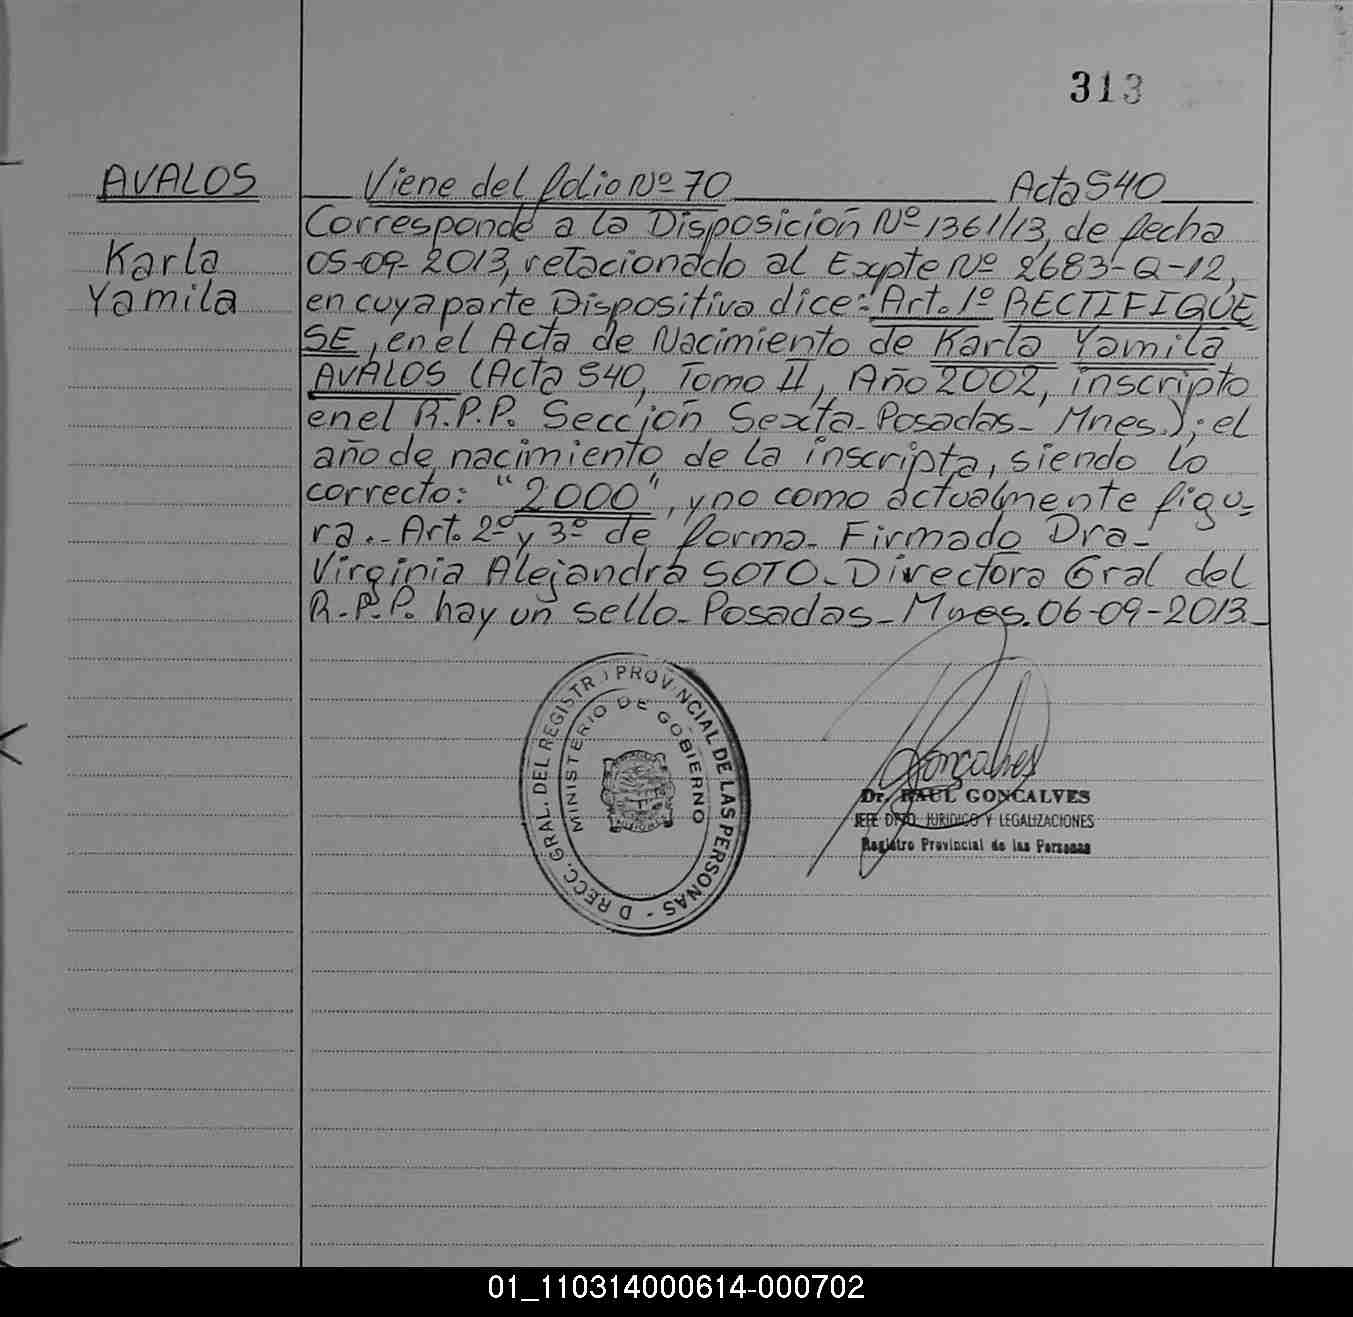 313
AVALOS
Karla
Yamila
Viene del folio Nº 70 Acta 540
Corresponde a la Disposición Nº 1361/13, de fecha
05-09-2013, relacionado al Expte Nº 2683-Q-12,
en cuya parte Dispositiva dice: Art. 1º RECTIFIQUE
SE, en el Acta de Nacimiento de Karla Yamila
AVALOS (Acta 540, Tomo II, Año 2002, inscripto
en el R.P.P. Sección Sexta-Posadas-Mnes.); el
año de nacimiento de la inscripta, siendo lo
correcto: "2000", y no como actualmente figu-
ra.- Art. 2º y 3º de forma- Firmado Dra-
Virginia Alejandra SOTO-Directora Gral del
R.P.P. hay un sello-Posadas-Mnes. 06-09-2013.-
DIRECC. GRAL. DEL REGISTRO PROVINCIAL DE LAS PERSONAS -
MINISTERIO DE GOBIERNO
Goncalves
Dr. RAUL GONCALVES
JEFE DPTO. JURIDICO Y LEGALIZACIONES
Registro Provincial de las Personas
01_110314000614-000702